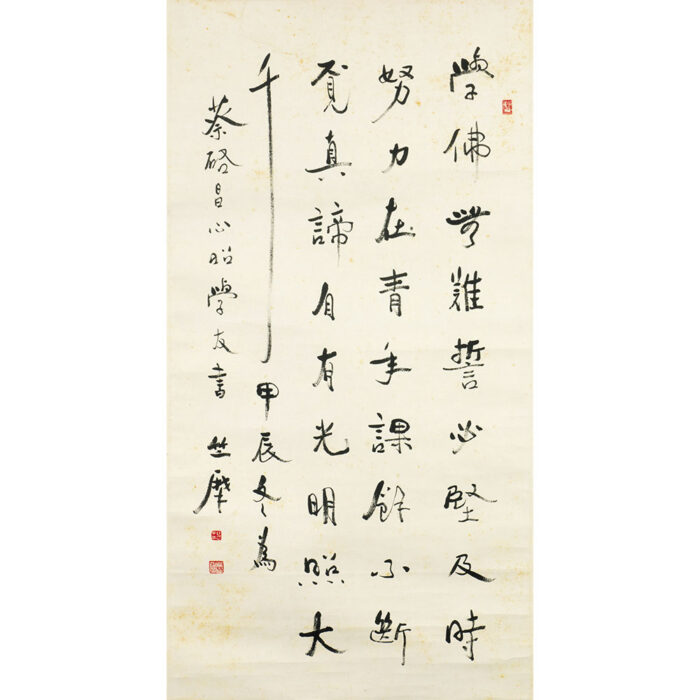 學佛無難誓必堅及時
努力在青年課餘不斷
覓真諦自有光明照大
千 甲辰冬為
蔡昌心昭學友書 竺摩